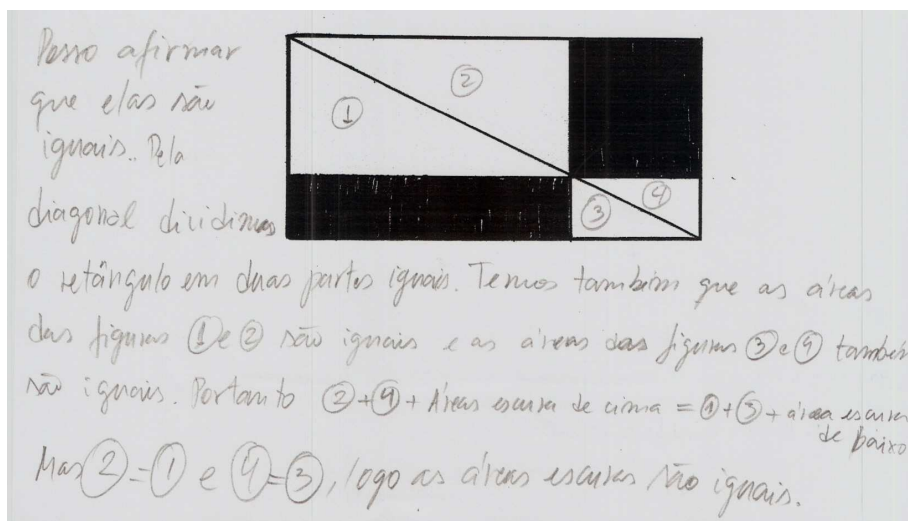 Posso afirmar
que elas são
iguais. Pela
diagonal dividimos
o retângulo em duas partes iguais. Temos também que as áreas
das figuras ① e ② são iguais e as áreas das figuras ③ e ④ também
são iguais. Portanto ② + ④ + Áreas escura de cima = ① + ③ + área escura
de baixo
Mas ② = ① e ④ = ③, logo as áreas escuras são iguais.
②
①
④
③